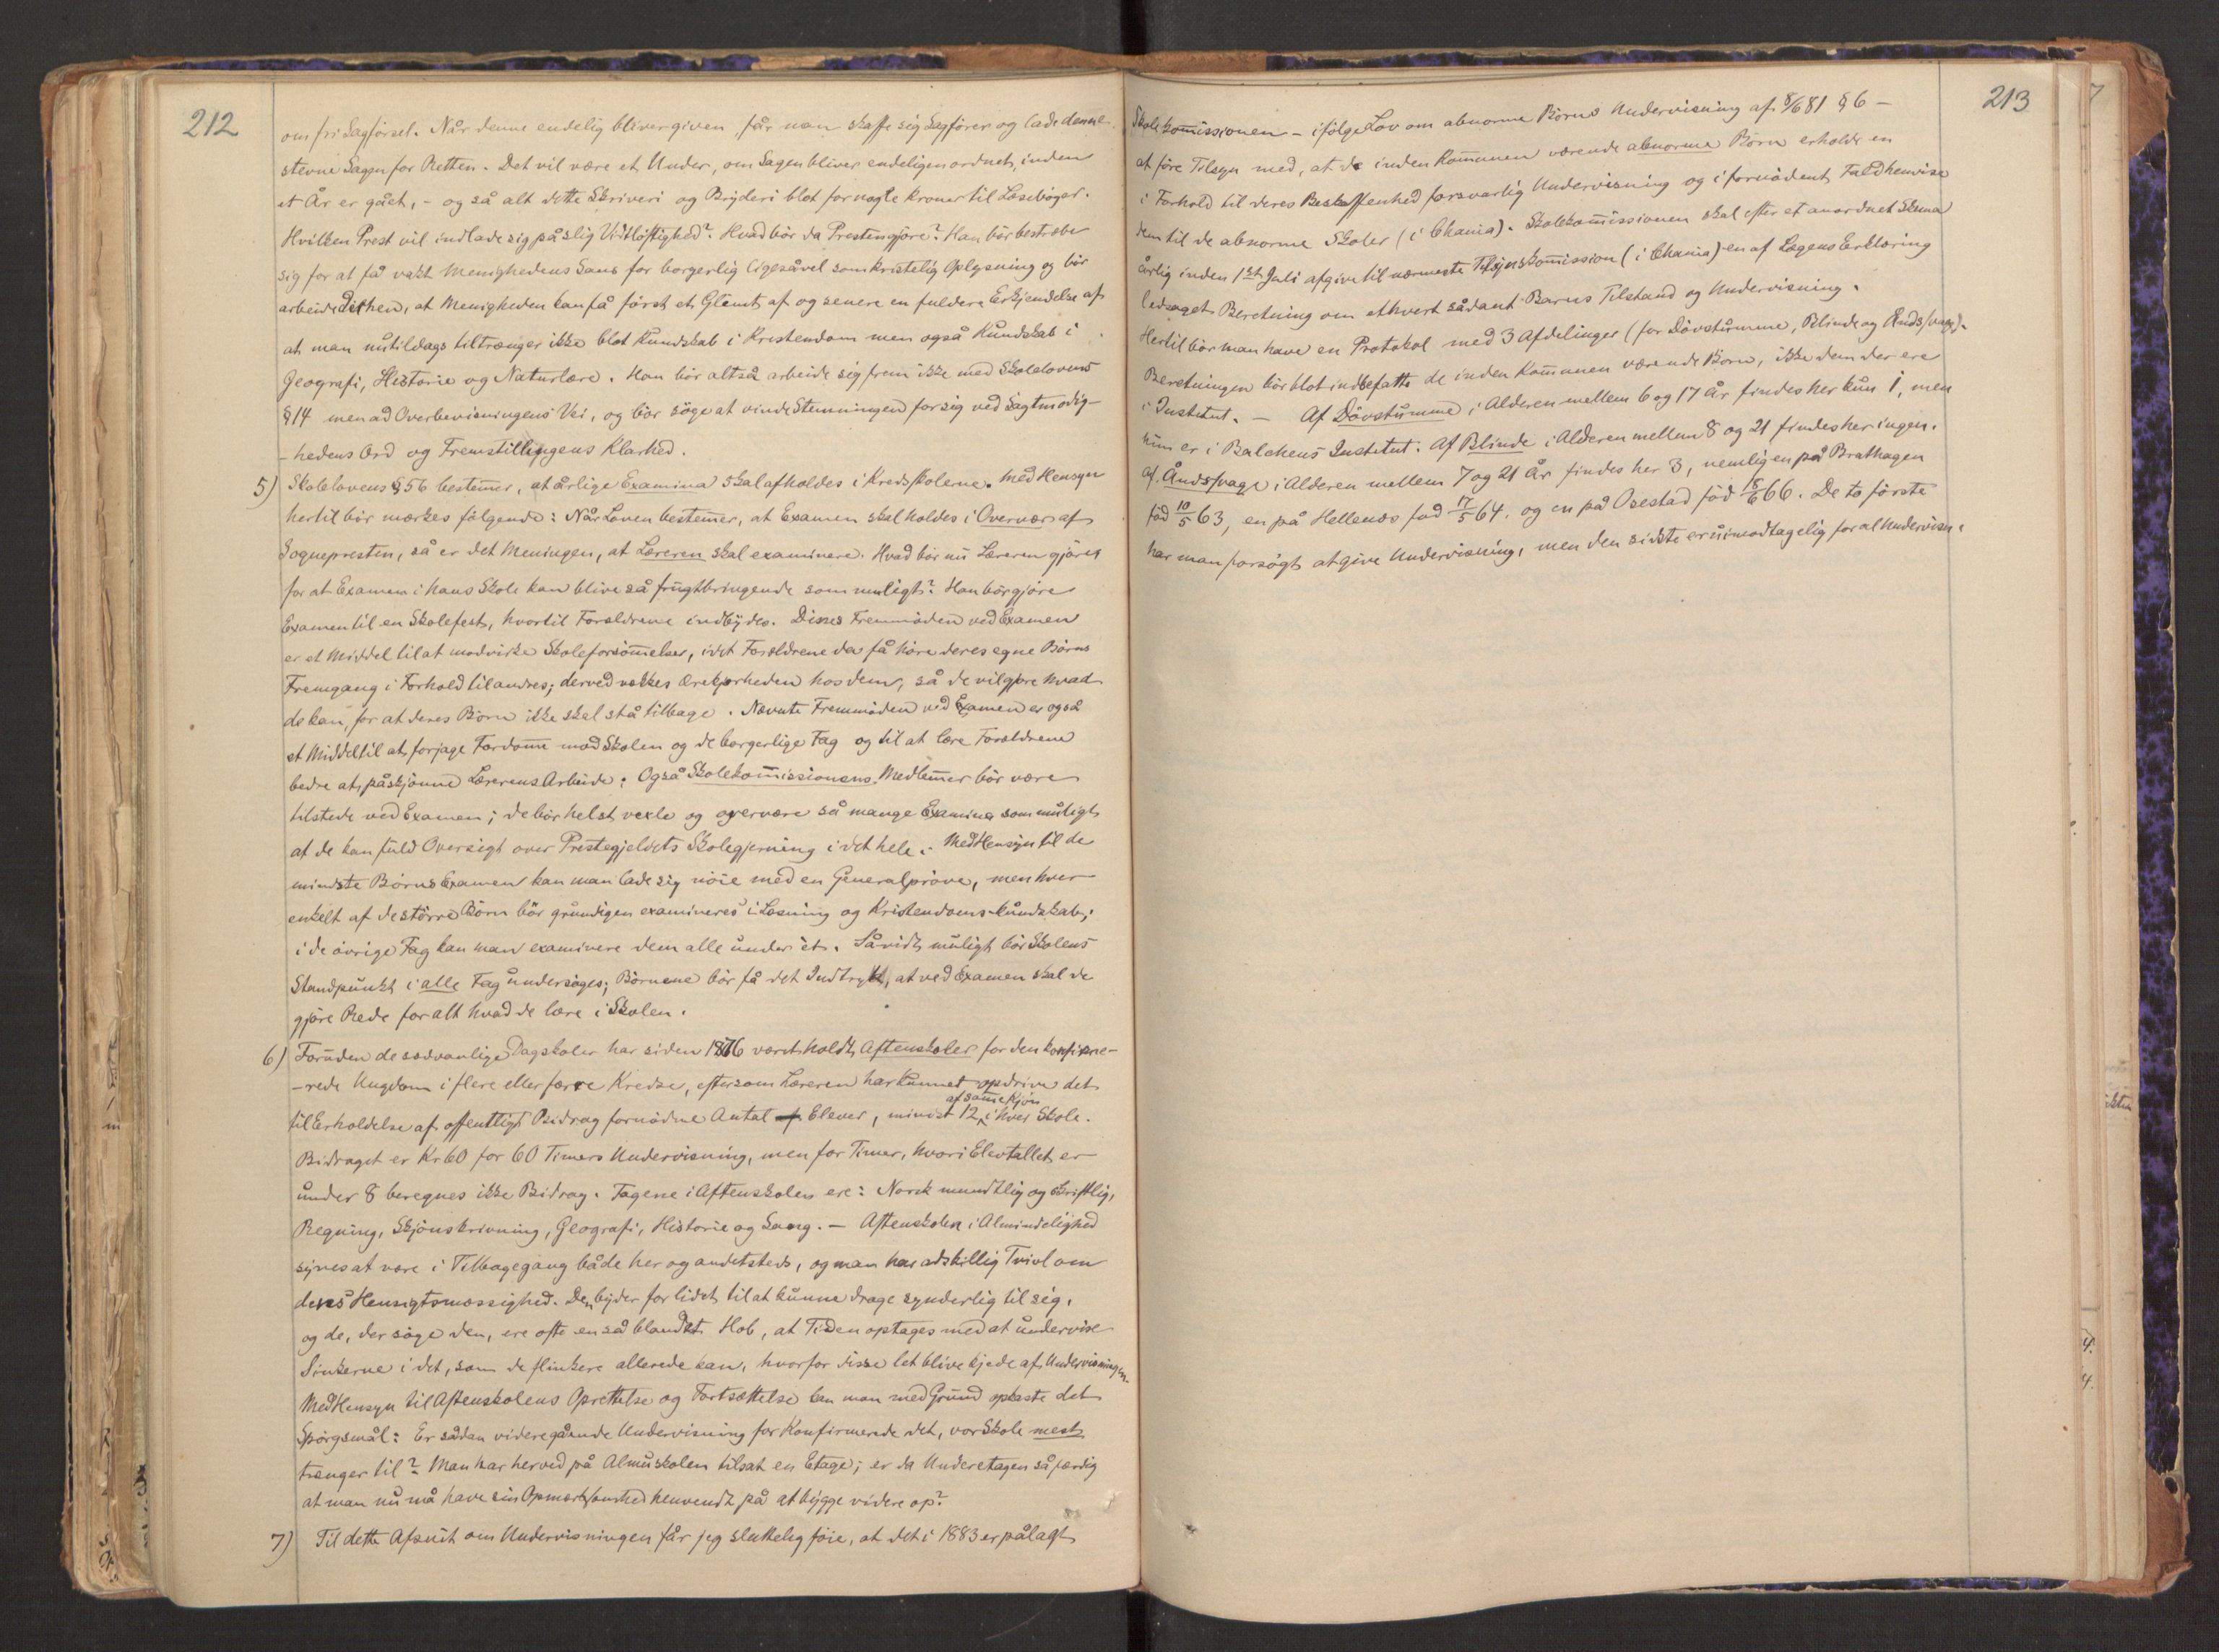 212
om fri Sagförsel. Når denne endelig bliver given, får man skaffe sig Sagförer og lade denne
stevne Sagen for Retten. Det vil være et Under, om Sagen bliver endeligen ordnet, inden
et År er gået, - og så alt dette Skriveri og Bryderi blot for nogle Kroner til Læsebøger.
Hvilken Prest vil indlade sig på slig Vidtløftighed? Hvad bör da Presten gjöre? Han bör bestræbe
sig for at få vakt Menighedens Sans for borgerlig ligesåvel som kristelig Oplysning og bör
arbeide Dithen, at Menigheden kan få först et Glimt af og senere en fuldere Erkjendelse af
at man nutildags tiltrænger ikke blot Kundskab i Kristendom men også Kundskab i
Geografi, Historie og Naturlære. Han bör altså arbeide sig frem ikke med Skolelovens
§ 14 men ad Overbevisningens Vei, og bör söge at vinde Stemningen for sig ved Sagtmodig-
-hedens Ord og Fremstillingens Klarhed.
5) Skolelovens § 56 bestemer, at årlige Examina skal afholdes i Kredsskolerne. Med Hensyn
hertil bör mærkes følgende: Når Loven bestemer, at Examen skal holdes i Overvær af
Sognepresten, så er det Meningen, at Læreren skal examinere. Hvad bör nu Læreren gjöre
for at Examen i hans Skole kan blive så frugtbringende som muligt? Han bör gjöre
Examen til en Skolefest, hvortil Forældrene indbydes. Disses Fremmöden ved Examen
er et Middel til at modvirke Skoleforsömelser, idet Forældrene da få höre deres egne Börns
Fremgang i Forhold til andres; derved vækkes Ærekjærheden hos dem, så de vil gjöre hvad
de kan, for at deres Börn ikke skal stå tilbage. Nævnte Fremmöden ved Examen er også
et Middel til at forjage Fordome mod Skolen og de borgerlige Fag og til at lære Forældrene
bedre at påskjönne Lærerens Arbeide; Også Skolekomissionens Medlemer bör være
tilstede ved Examen; de bör helst vexle og overvære så mange Examina som muligt
at de kan få fuld Oversigt over Prestegjeldets Skolegjerning i det hele. Med Hensyn til de
mindste Börns Examen kan man lade sig nöie med en Generalpröve, men hver
enkelt af de större Börn bör grundigen examineres i Læsning og Kristendomskundskab;
i de övrige Fag kan man examinere dem alle under ét. Såvidt muligt bör Skolens
Standpunkt i alle Fag undersöges; Börnene bör få det Indtryk, at ved Examen skal de
gjöre Rede for alt hvad de lære i Skolen.
6) Foruden de sædvanlige Dagskoler har siden 1876 været holdt Aftenskoler for den konfirme-
-rede Ungdom i flere eller færre Kredse, eftersom Læreren har kunnet opdrive det
af same Kjön
til Erholdelse af offentligt Bidrag fornödne Antal Elever, mindst 12 i hver Skole.
Bidraget er Kr 60 for 60 Timers Undervisning, men for Timer, hvori Elevtallet er
under 8 beregnes ikke Bidrag. Fagene i Aftenskolen ere: Norsk mundtlig og skriftlig,
Regning, Skjönskrivning, Geografi, Historie og Sang. - Aftenskolen i Almindelighed
synes at være i Tilbagegang både her og andetsteds, og man har adskillig Tvivl om
dens Hensigtsmæssighed. Den byder for lidet til at kunne drage synderlig til sig,
og de, der söge den, ere ofte en så blandet Hob, at Tiden optages med at undervise
Sinkerne i det, som de flinkere allerede kan, hvorfor disse let blive kjede af Undervisningen.
Med Hensyn til Aftenskolens Oprettelse og Fortsættelse kan man med Grund opkaste det
Spörgsmål: Er sådan videregående Undervisning for Konfirmerede det, vor Skole mest
trænger til? Man har herved på Almuskolen tilsat en Etage; er da Underetagen så færdig
at man nu må have sin Opmærksomhed henvendt på at bygge videre op?
7) Til dette Afsnit om Undervisningen får jeg sluttelig föie, at det i 1883 er pålagt
213
Skolekomissionen - ifölge Lov om abnorme Börns Undervisning af 8/6 81 § 6 -
at före Tilsyn med, at de inden Komunen værende abnorme Börn erholde en
i Forhold til deres Beskaffenhed forsvarlig Undervisning og i fornödent Fald henvise
dem til de abnorme Skoler (i Chania). Skolekomissionen skal efter et anordnet Skema
årlig inden 1ste Juli afgive til nærmeste Tilsynskomission (i Chania) en af Lægens Erklæring
ledsaget Beretning om ethvert sådant Barns Tilstand og Undervisning.
Hertil bör man have en Protokol med 3 Afdelinger (for Dövstumme, Blinde og Åndssvage).
Beretningen bör blot indbefatte de inden Komunen værende Börn, ikke dem der ere
i Institut. - Af Dövstumme i Alderen mellem 6 og 17 År findes her kun 1, men
hun er i Balchens Institut. Af Blinde i Alderen mellem 8 og 21 findes her ingen.
Af Åndssvage i Alderen mellem 7 og 21 År findes her 3, nemlig en på Brathagen
föd 10/5 63, en på Hellenes föd 17/5 64, og en på Osestad föd 18/6 66. De to förste
har man forsögt at give Undervisning, men den sidste er uimodtagelig for al Undervisn.